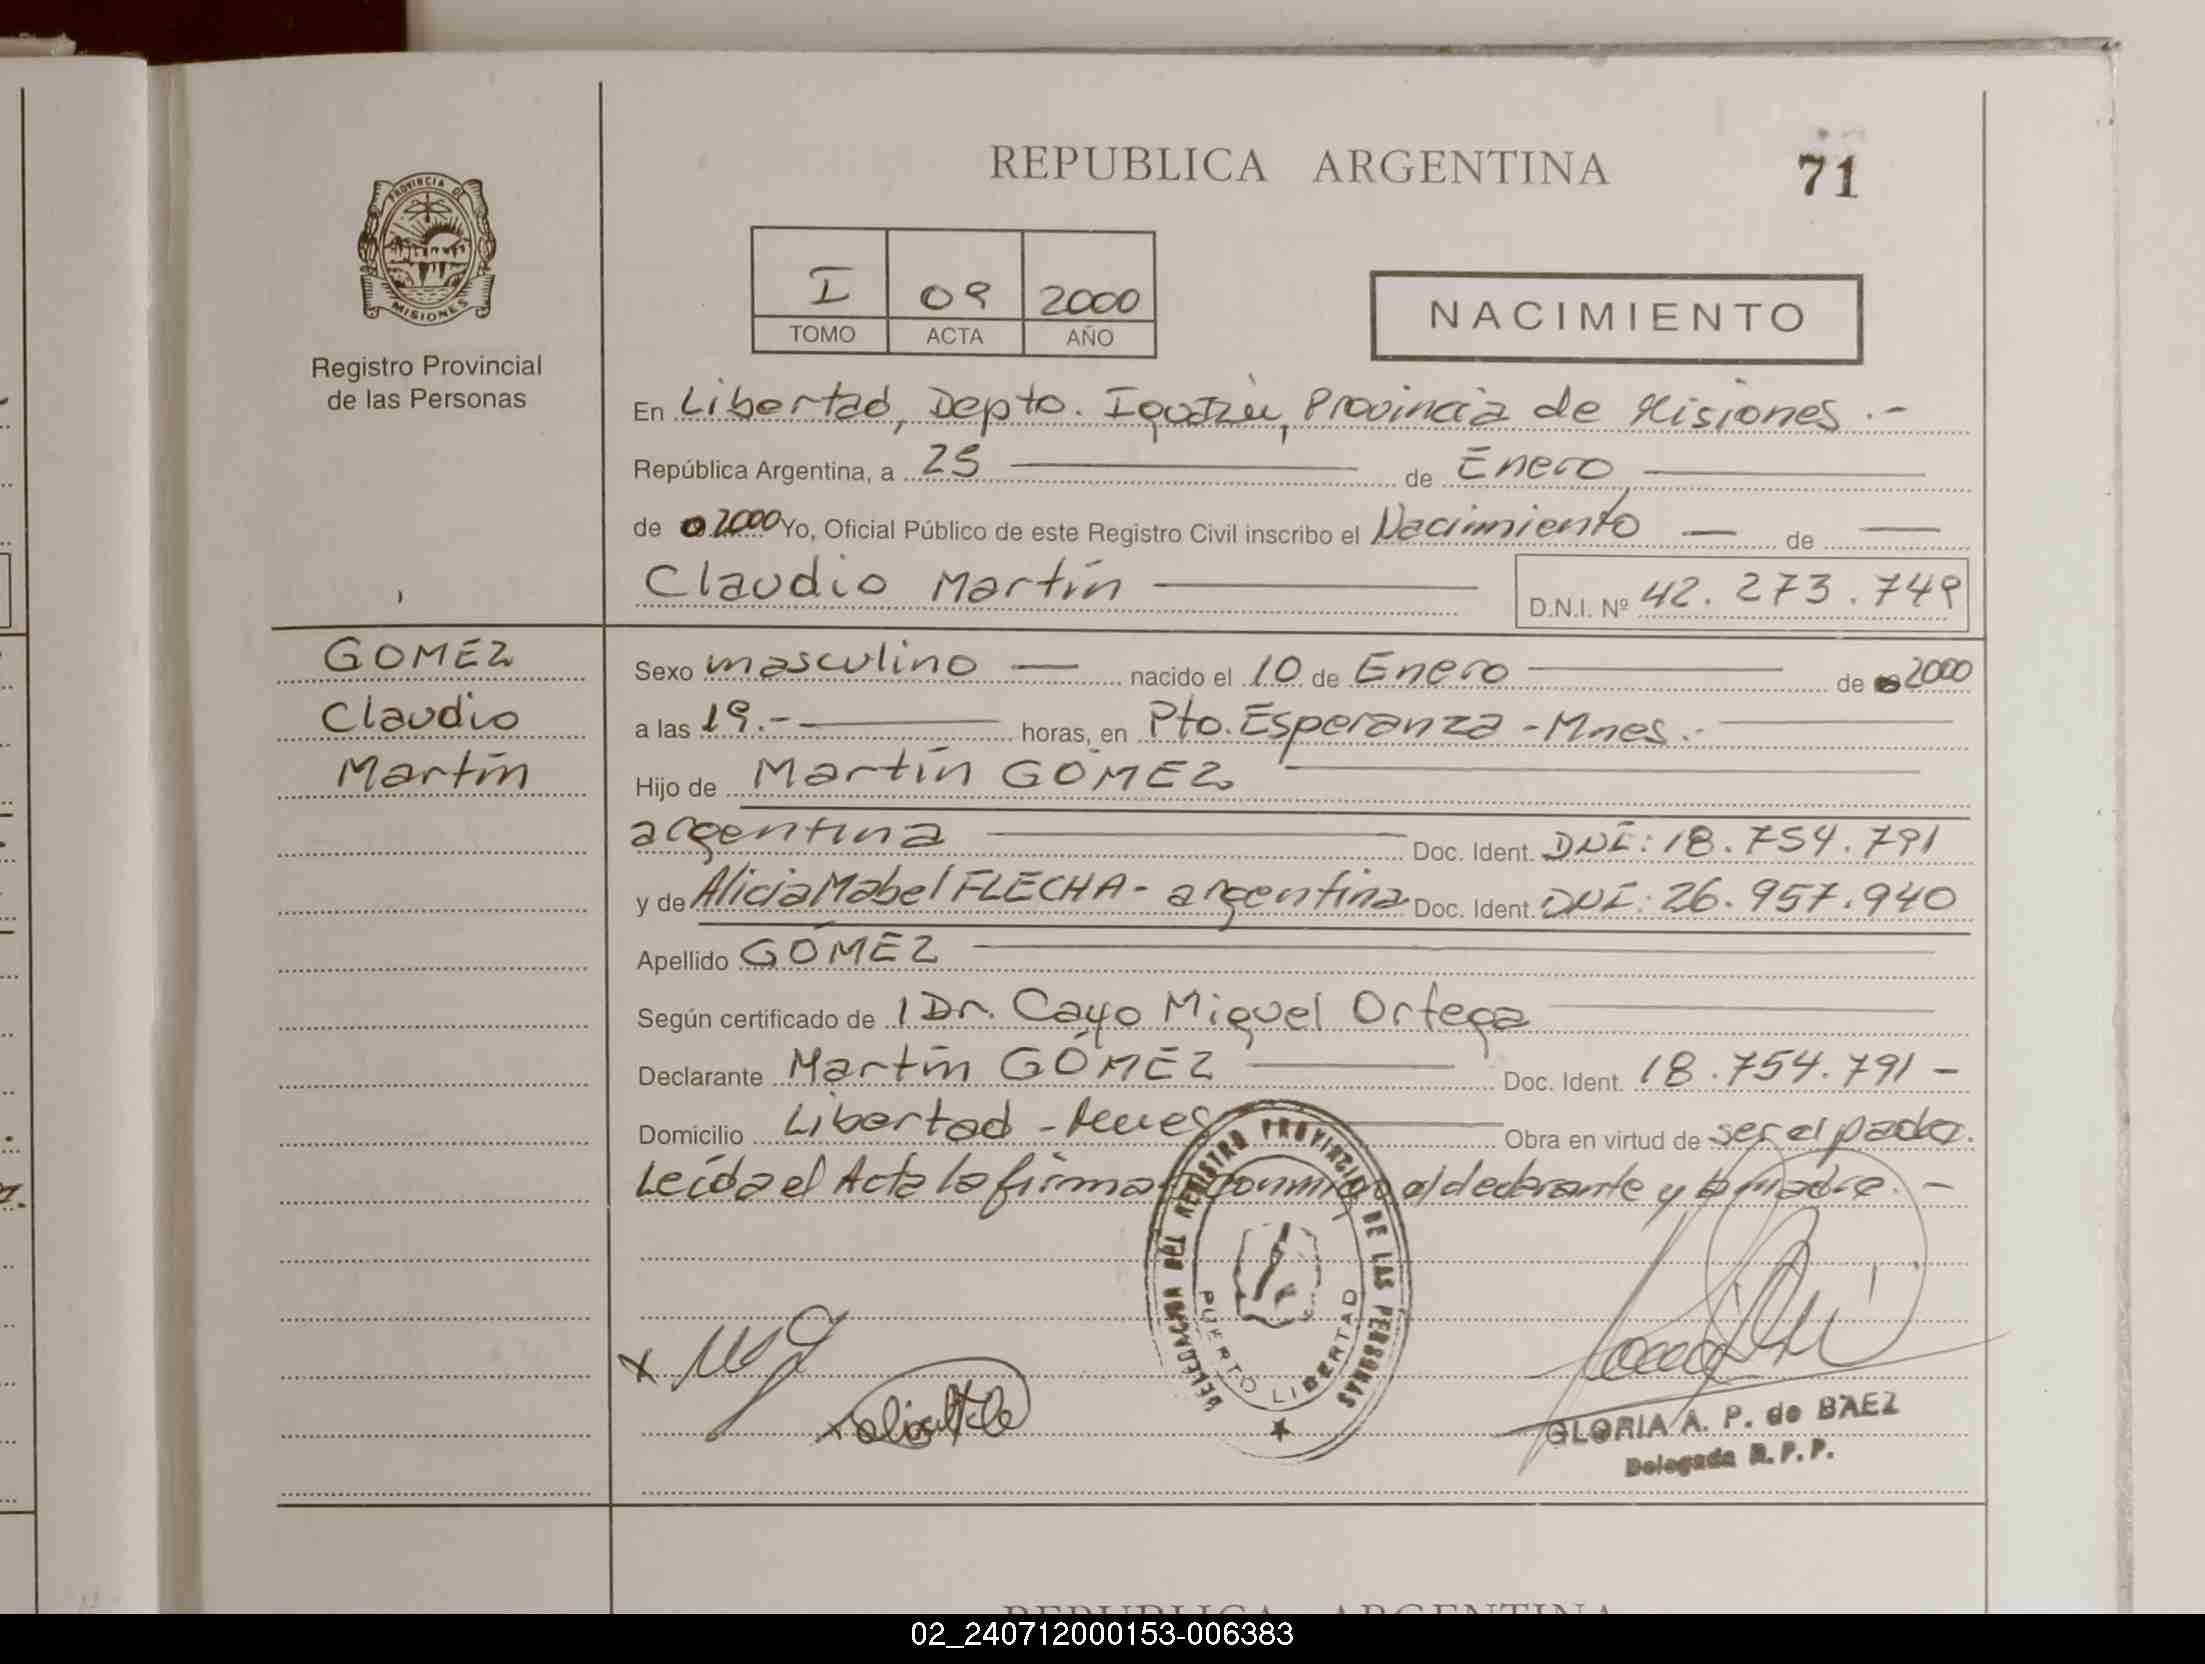 REPUBLICA ARGENTINA
71
PROVINCIA DE
MISIONES
Registro Provincial
de las Personas
I 09 2000
TOMO ACTA AÑO
NACIMIENTO
En Libertad, Depto. Iguazú, Provincia de Misiones.-
República Argentina, a 25 de Enero
de 2000 Yo, Oficial Público de este Registro Civil inscribo el Nacimiento — de —
Claudio Martín D.N.I. Nº 42.273.749
GOMEZ
Claudio
Martín
Sexo masculino — nacido el 10 de Enero de 2000
a las 19.- horas, en Pto. Esperanza - Mnes.-
Hijo de Martín GÓMEZ
argentina Doc. Ident. DNI: 18.754.791
y de Alicia Mabel FLECHA - argentina Doc. Ident. DNI: 26.957.940
Apellido GÓMEZ
Según certificado de l Dr. Cayo Miguel Ortega
Declarante Martín GÓMEZ Doc. Ident. 18.754.791 -
Domicilio Libertad - Mnes Obra en virtud de ser el padre.
Leída el Acta la firman conmigo el declarante y la madre. -
DELEGACION DEL REGISTRO PROVINCIAL DE LAS PERSONAS
PUERTO LIBERTAD
GLORIA A. P. de BAEZ
Delegada R. P. P.
REPUBLICA ARGENTINA
02_240712000153-006383